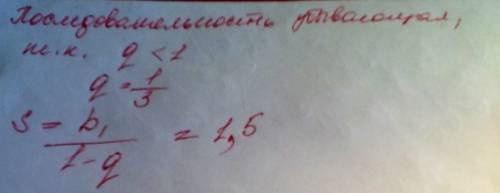 Последовательность убывающая,
т.к. q < 1
q = 1/3
S = b₁/(1-q) = 1,5